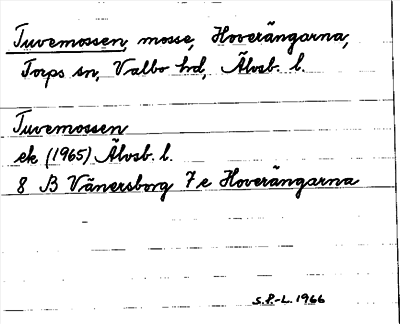 Tuvemossen, mosse, Hoverängarna,
Torps sn, Valbo hd, Älvsb. l.
Tuvemossen
ek (1965) Älvsb. l.
8 B Vänersborg 7e Hoverängarna
S.P.-L. 1966